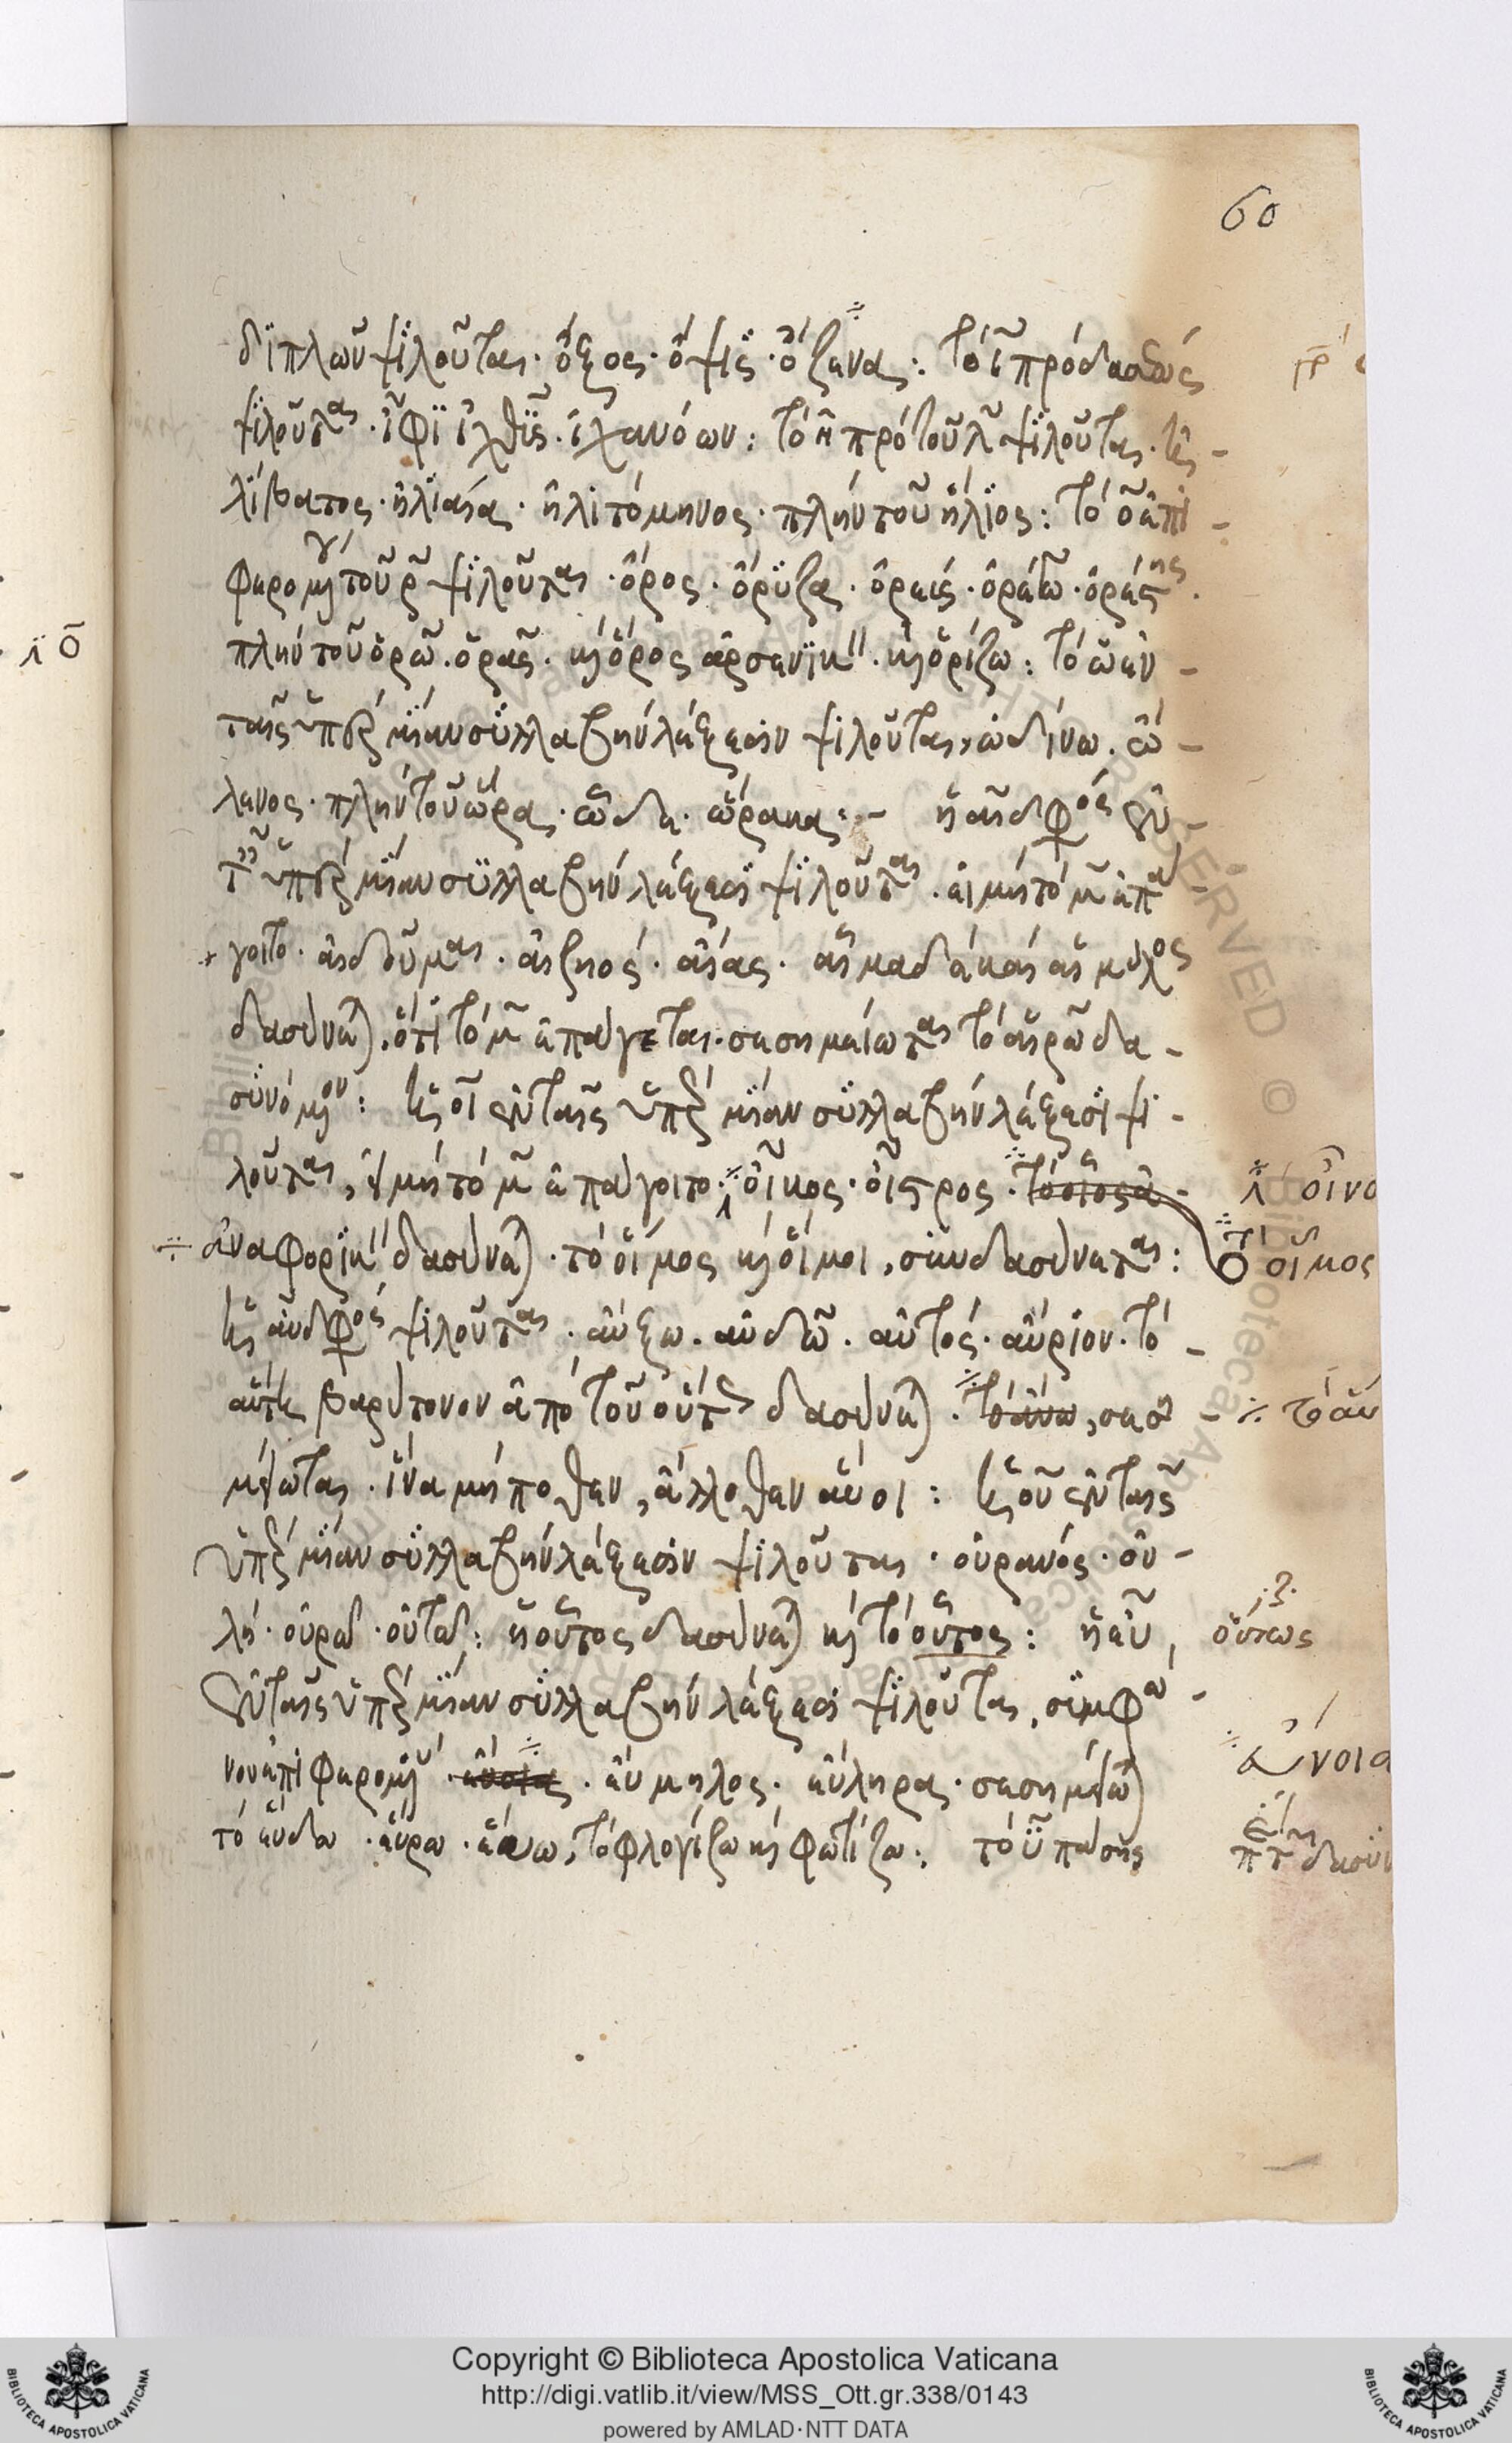 60
διπλῶν ψιλοῦται· ὄξος· ὄψις· ὄζαινα: τὸ ῑ πρὸ δασέως
ψιλοῦται· ἶφι ἰχθῦς· ἰχανόων: τὸ η̄ πρὸ τοῦ λ̄ ψιλοῦται· ἠ-
λίβατος· ἠλιαία· ἠλιτόμηνος· πλὴν τοῦ ἥλιος: τὸ ο̄ ἐπι
φερομένου τοῦ ρ̄ ψιλοῦται· ὄρος· ὄρυζα· ὀρεύς· ὀρέγω·
πλὴν τοῦ ὁρῶ· ὁρᾷς· καὶ ὅρος ἀρσενικὴ· καὶ ὁρίζω: τὸ ω̄ ἐν
ταῖς ὑπὲρ μίαν συλλαβὴν λέξεσιν ψιλοῦται, ὠδίνω. ὠ-
λενος· πλὴν τοῦ ὥρα· ὧδε· ἑώρακα:- ἡ αι δίφθογγος ἐν
ταῖς ὑπὲρ μίαν συλλαβὴν λέξεσι ψιλοῦται· εἰ μὴ τὸ μ̄ ἐπά
γοιτο· αἰδοῦμαι· αἰζηός· αἴας· αἷμα δὲ καὶ αἱμύλος
δασύνεται, ὅτι τὸ μ̄ ἐπάγεται· σεσημείωται τὸ αἱρῶ δα-
συνόμενον: ἡ οι ἐν ταῖς ὑπὲρ μίαν συλλαβὴν λέξεσι ψι-
λοῦται, εἰ μὴ τὸ μ̄ ἐπάγοιτο· οἶκος· οἶστρος· τὸ οἷος ἀ-
ἀναφορικὴ δασύνεται· τὸ οἶμος καὶ οἴμοι, οὐ δασύνεται:
ἡ αυ δίφθογγος ψιλοῦται· αὔξω· αὐδῶ· αὐτός· αὔριον· τὸ
αὕτη βαρύτονον ἀπὸ τοῦ οὗτος δασύνεται· τὸ αὕω, σεση
μείωται· ἵνα μή ποθεν, ἄλλοθεν αὕοι: ἡ ου ἐν ταῖς
ὑπὲρ μίαν συλλαβὴν λέξεσιν ψιλοῦται· οὐρανός· οὐ-
λή· οὐρά· οὐτά: ἡ οὗτος δασύνεται καὶ τὸ οὗτος: ἡ ευ,
ἐν ταῖς ὑπὲρ μίαν συλλαβὴν λέξεσι ψιλοῦται, συμφώ-
νου ἐπιφερομένου· εὔνοια· εὔμηλος· εὔληρα· σεσημείωται
τὸ εὕδω· εὕρω· εὕω, τὸ φλογίζω καὶ φωτίζω: τὸ ῡ πάσης
οἶνο
οἶμος
τὸ αὔ
οὕτως
εὔνοια
Copyright © Biblioteca Apostolica Vaticana
http://digi.vatlib.it/view/MSS_Ott.gr.338/0143
powered by AMLAD·NTT DATA